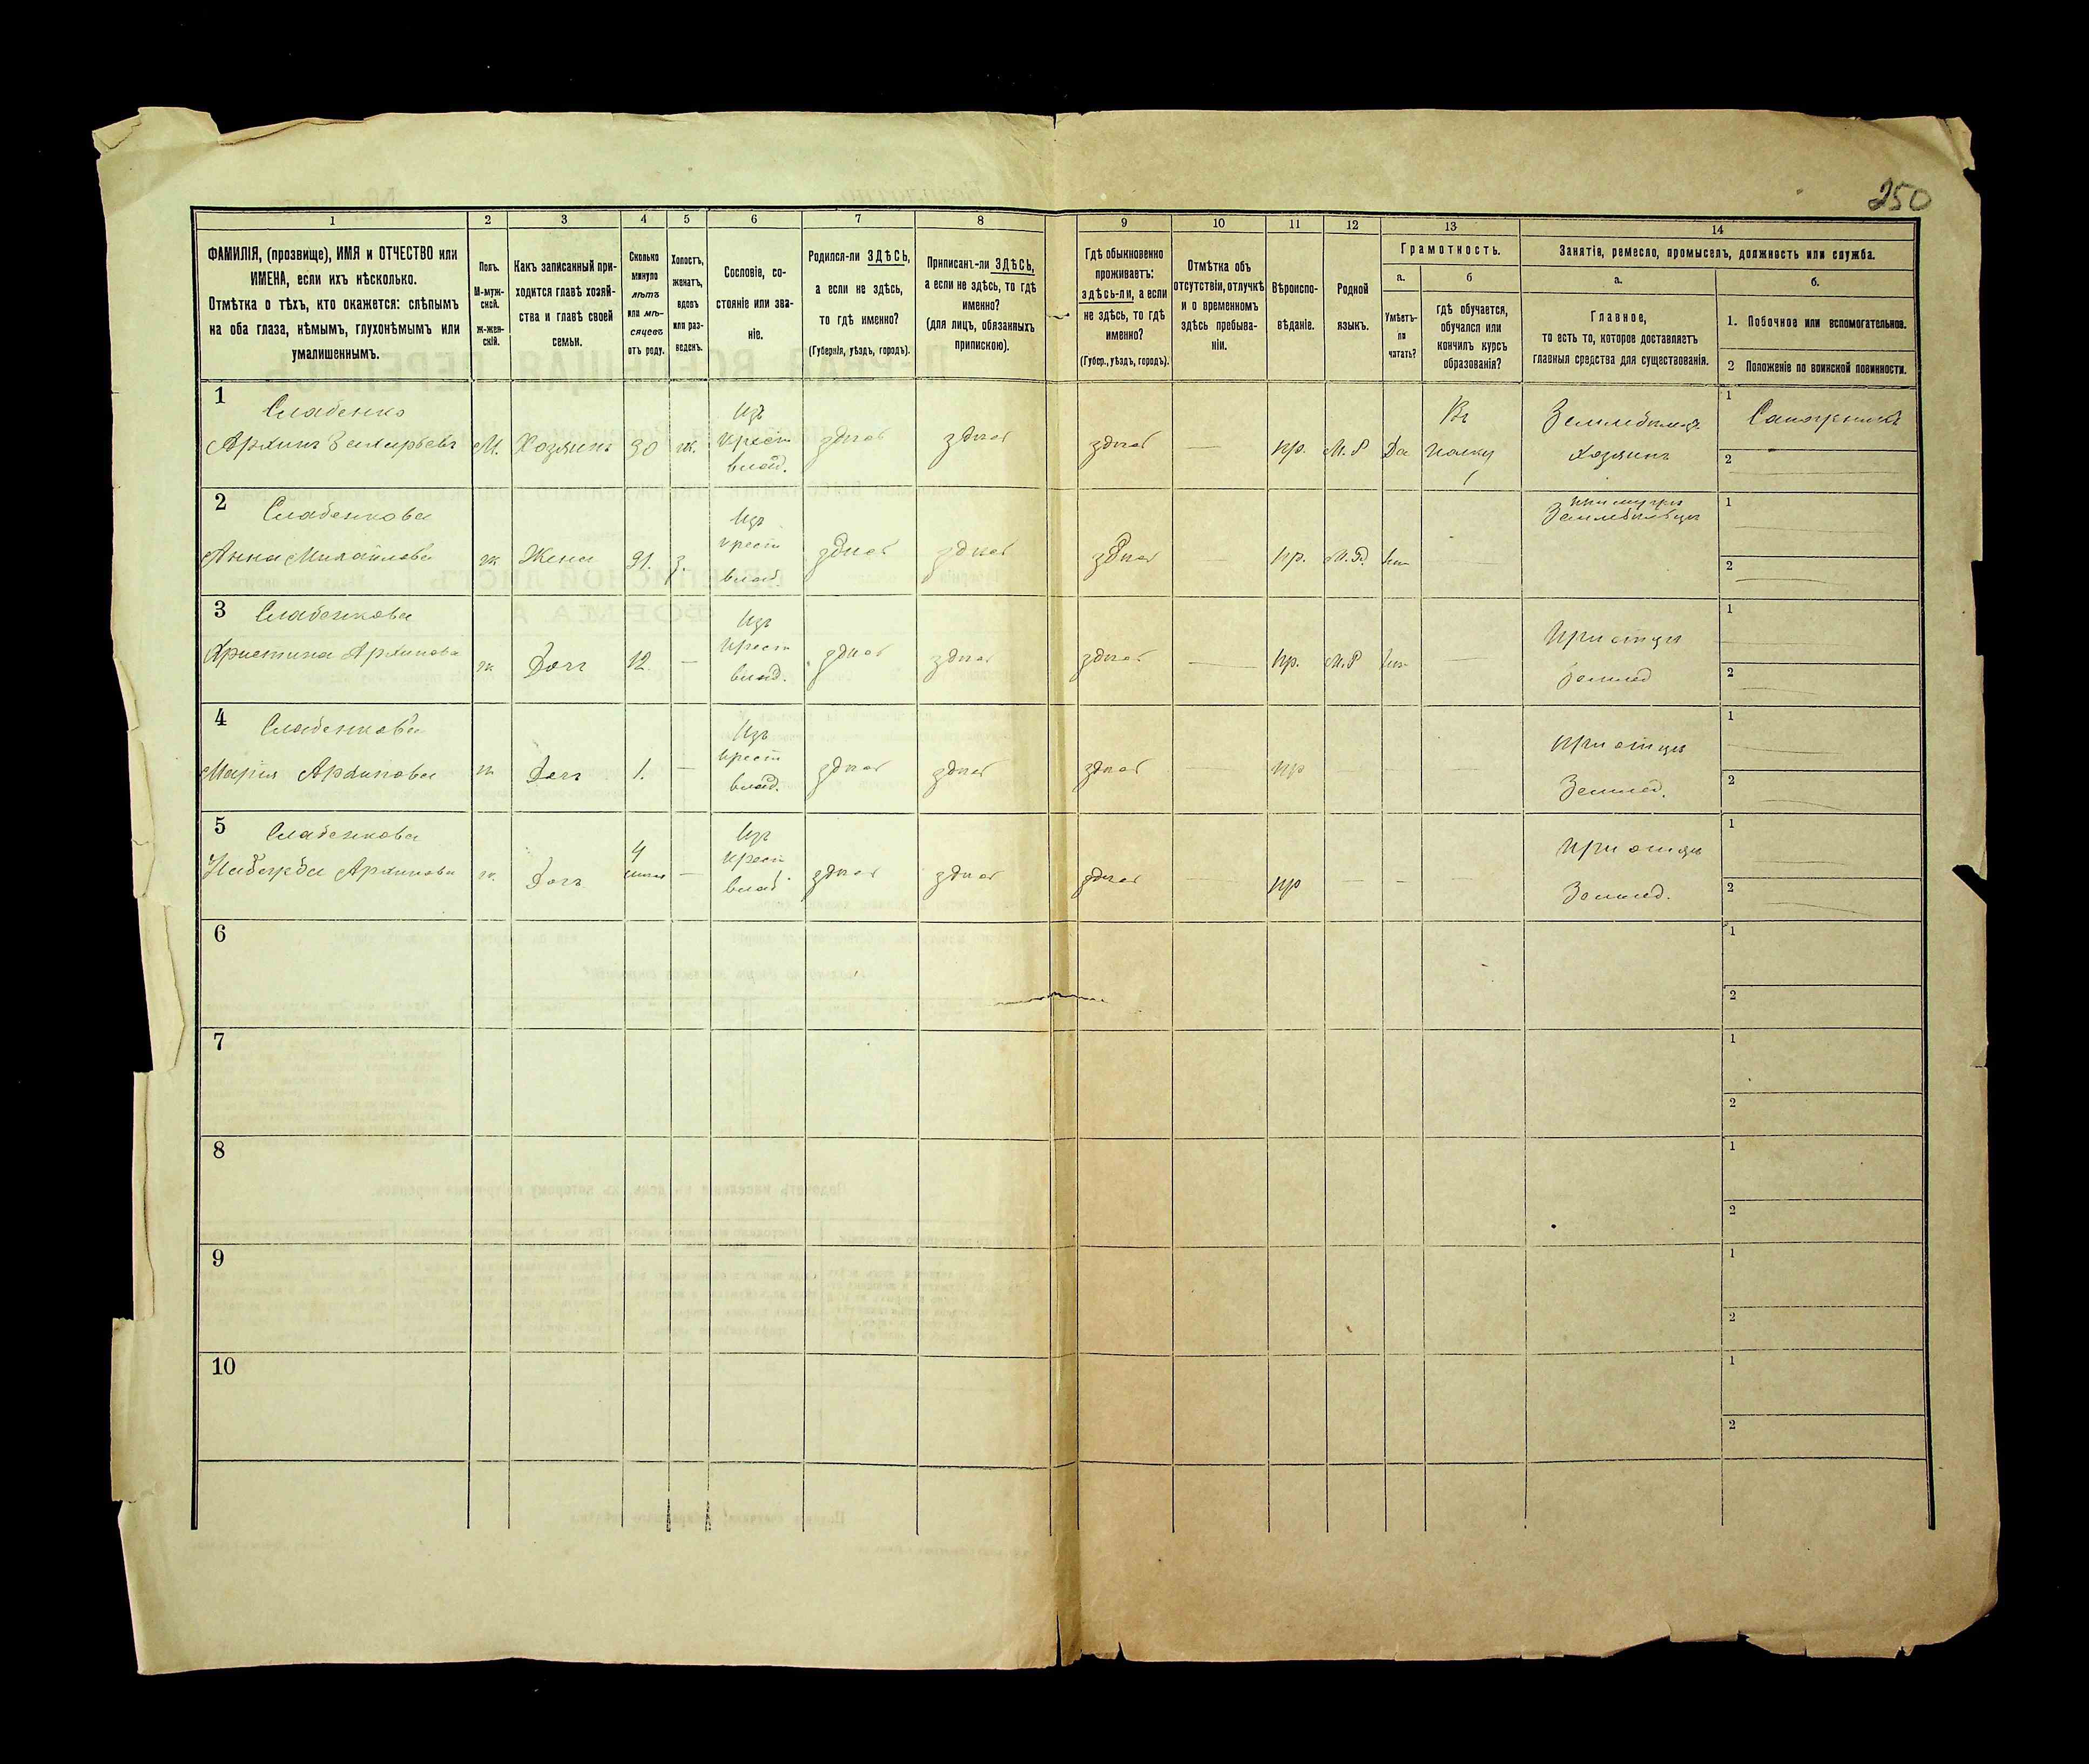 250
1 2 3 4 5 6 7 8 9 10 11 12 13 14
ФАМИЛІЯ, (прозвище), ИМЯ и ОТЧЕСТВО или
ИМЕНА, если ихъ нѣсколько.
Отмѣтка о тѣхъ, кто окажется: слѣпымъ
на оба глаза, нѣмымъ, глухонѣмымъ или
умалишеннымъ.
Полъ.
М-муж-
ской.
ж-жен-
скій.
Какъ записанный при-
ходится главѣ хозяй-
ства и главѣ своей
семьи.
Сколько
минуло
лѣтъ
или мѣ-
сяцевъ
отъ роду.
Холостъ,
женатъ,
вдовъ
или раз-
веденъ.
Сословіе, со-
стояніе или зва-
ніе.
Родился-ли ЗДѢСЬ,
а если не здѣсь,
то гдѣ именно?
(Губернія, уѣздъ, городъ).
Приписанъ-ли ЗДѢСЬ,
а если не здѣсь, то гдѣ
именно?
(для лицъ, обязанныхъ
припискою).
Гдѣ обыкновенно
проживаетъ:
здѣсь-ли, а если
не здѣсь, то гдѣ
именно?
(Губер., уѣздъ, городъ).
Отмѣтка объ
отсутствіи, отлучкѣ
и о временномъ
здѣсь пребыва-
ніи.
Вѣроиспо-
вѣданіе.
Родной
языкъ.
Грамотность.
а.
Умѣетъ-
ли
читать?
б
гдѣ обучается,
обучался или
кончилъ курсъ
образованія?
Занятіе, ремесло, промыселъ, должность или служба.
а.
Главное,
то есть то, которое доставляетъ
главныя средства для существованія.
б.
1. Побочное или вспомогательное.
2 Положеніе по воинской повинности.
1
Слабенко
Архипъ М. Хозяинъ 30 ж.
Изъ
крест
влад.
здѣсь здѣсь здѣсь — пр. М. Р Да
Въ
полку
Хозяинъ
1 Сапожникъ
2
2
Слабенкова
Анна Михайлова ж Жена 31. з.
Изъ
крест
влад
здѣсь здѣсь здѣсь — пр. М. Р. —
при мужѣ
1
2
3
Слабенкова
Христина Архипова ж Дочь 12. —
Изъ
крест
влад.
здѣсь здѣсь здѣсь — пр. М. Р —
При отцѣ
Землед
1
2
4
Слабенкова
Марія Архипова ж Дочь 1. —
Изъ
крест
влад.
здѣсь здѣсь здѣсь — пр — — —
При отцѣ
Землед.
1
2
5
Слабенкова
Надежда Архипова ж. Дочь 4 —
Изъ
крест
влад
здѣсь здѣсь здѣсь — пр — — —
При отцѣ
Землед.
1
2
6
1
2
7
1
2
8
1
2
9
1
2
10
1
2